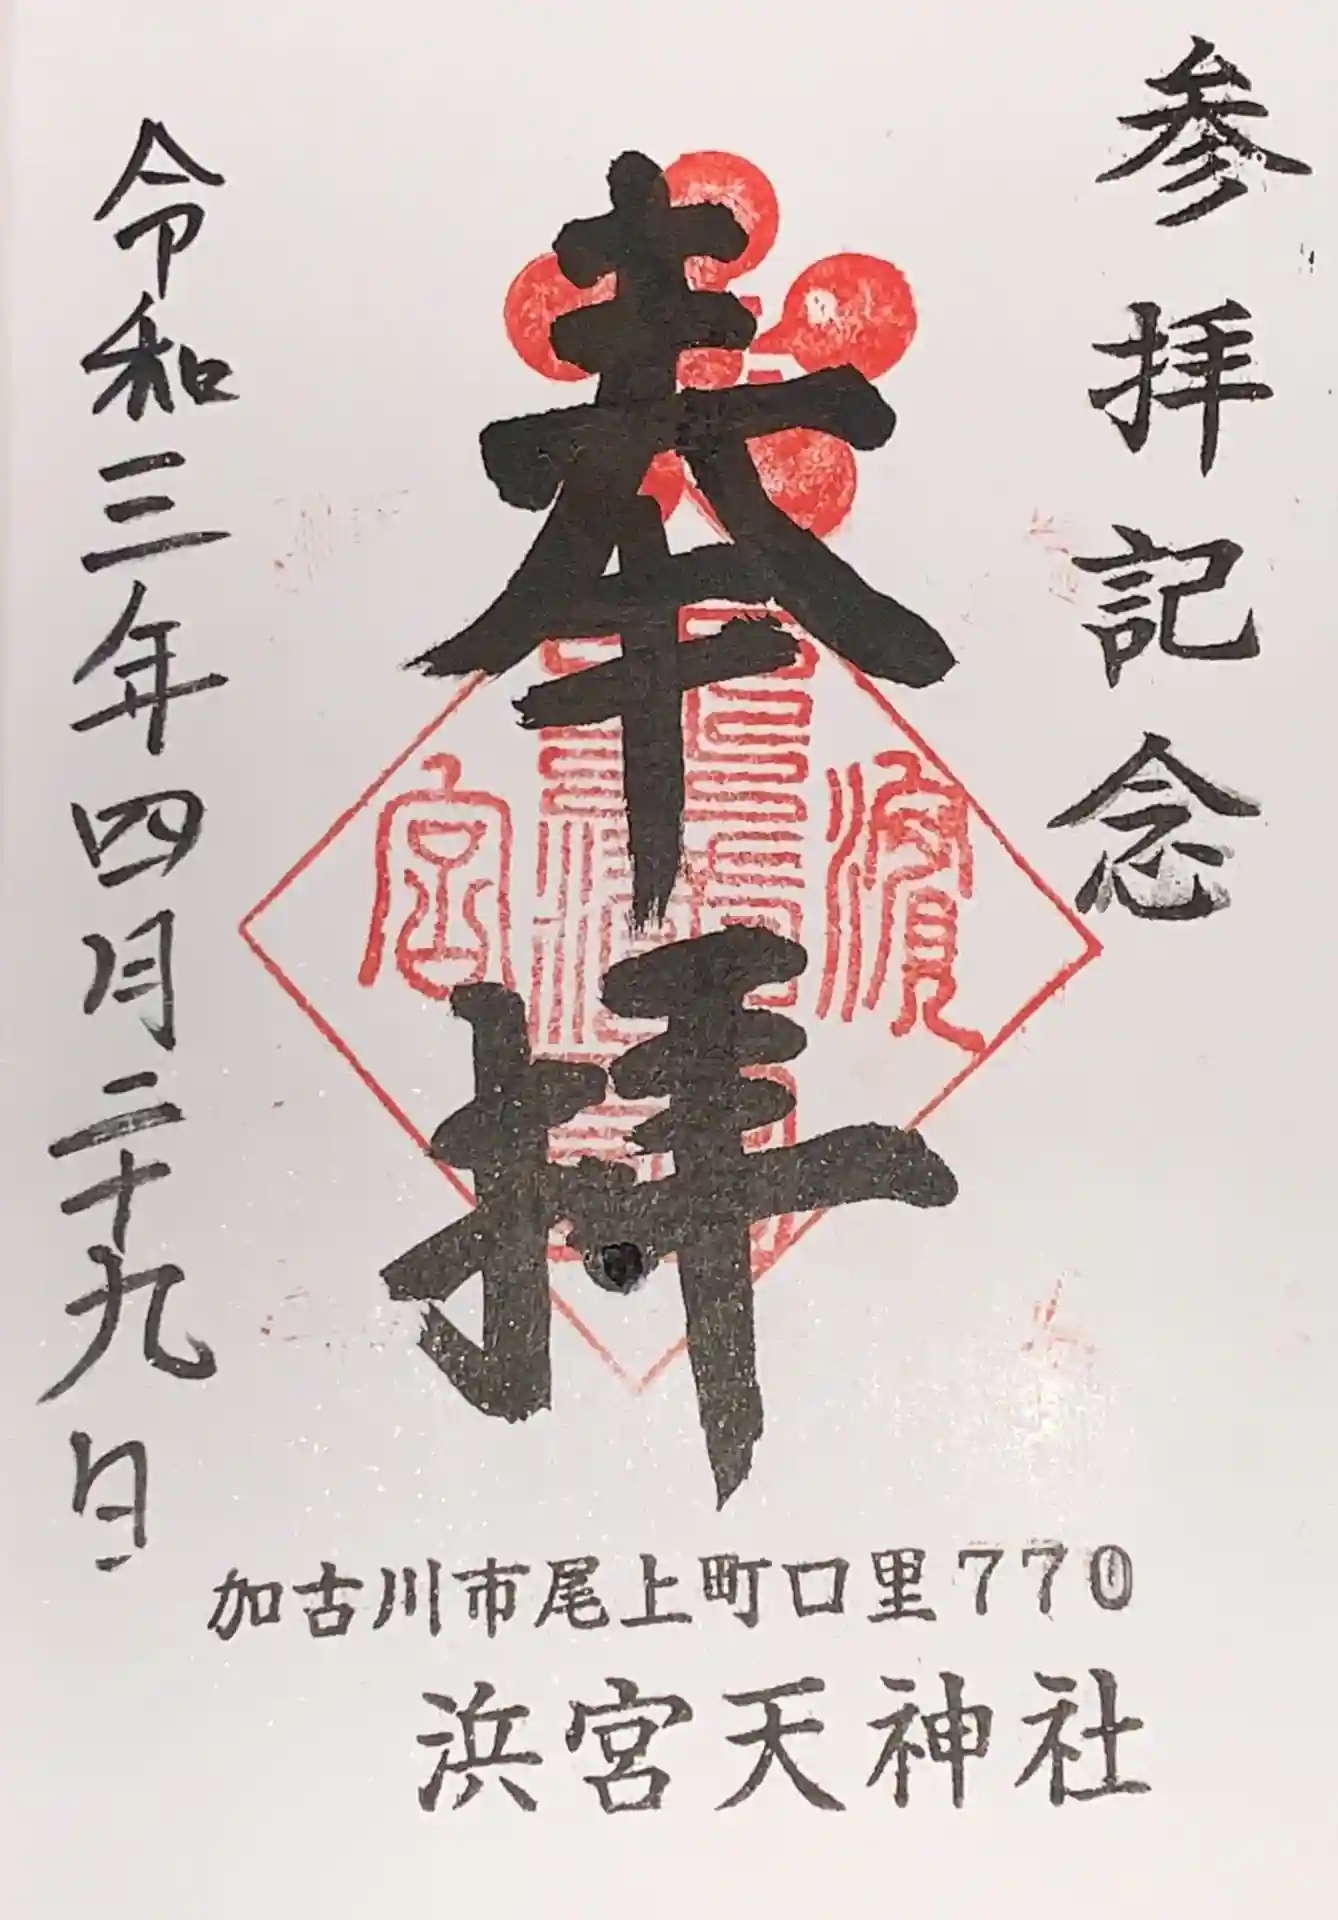 参拝記念
奉拝
濱
宮
令和三年四月二十九日
加古川市尾上町口里770
浜宮天神社